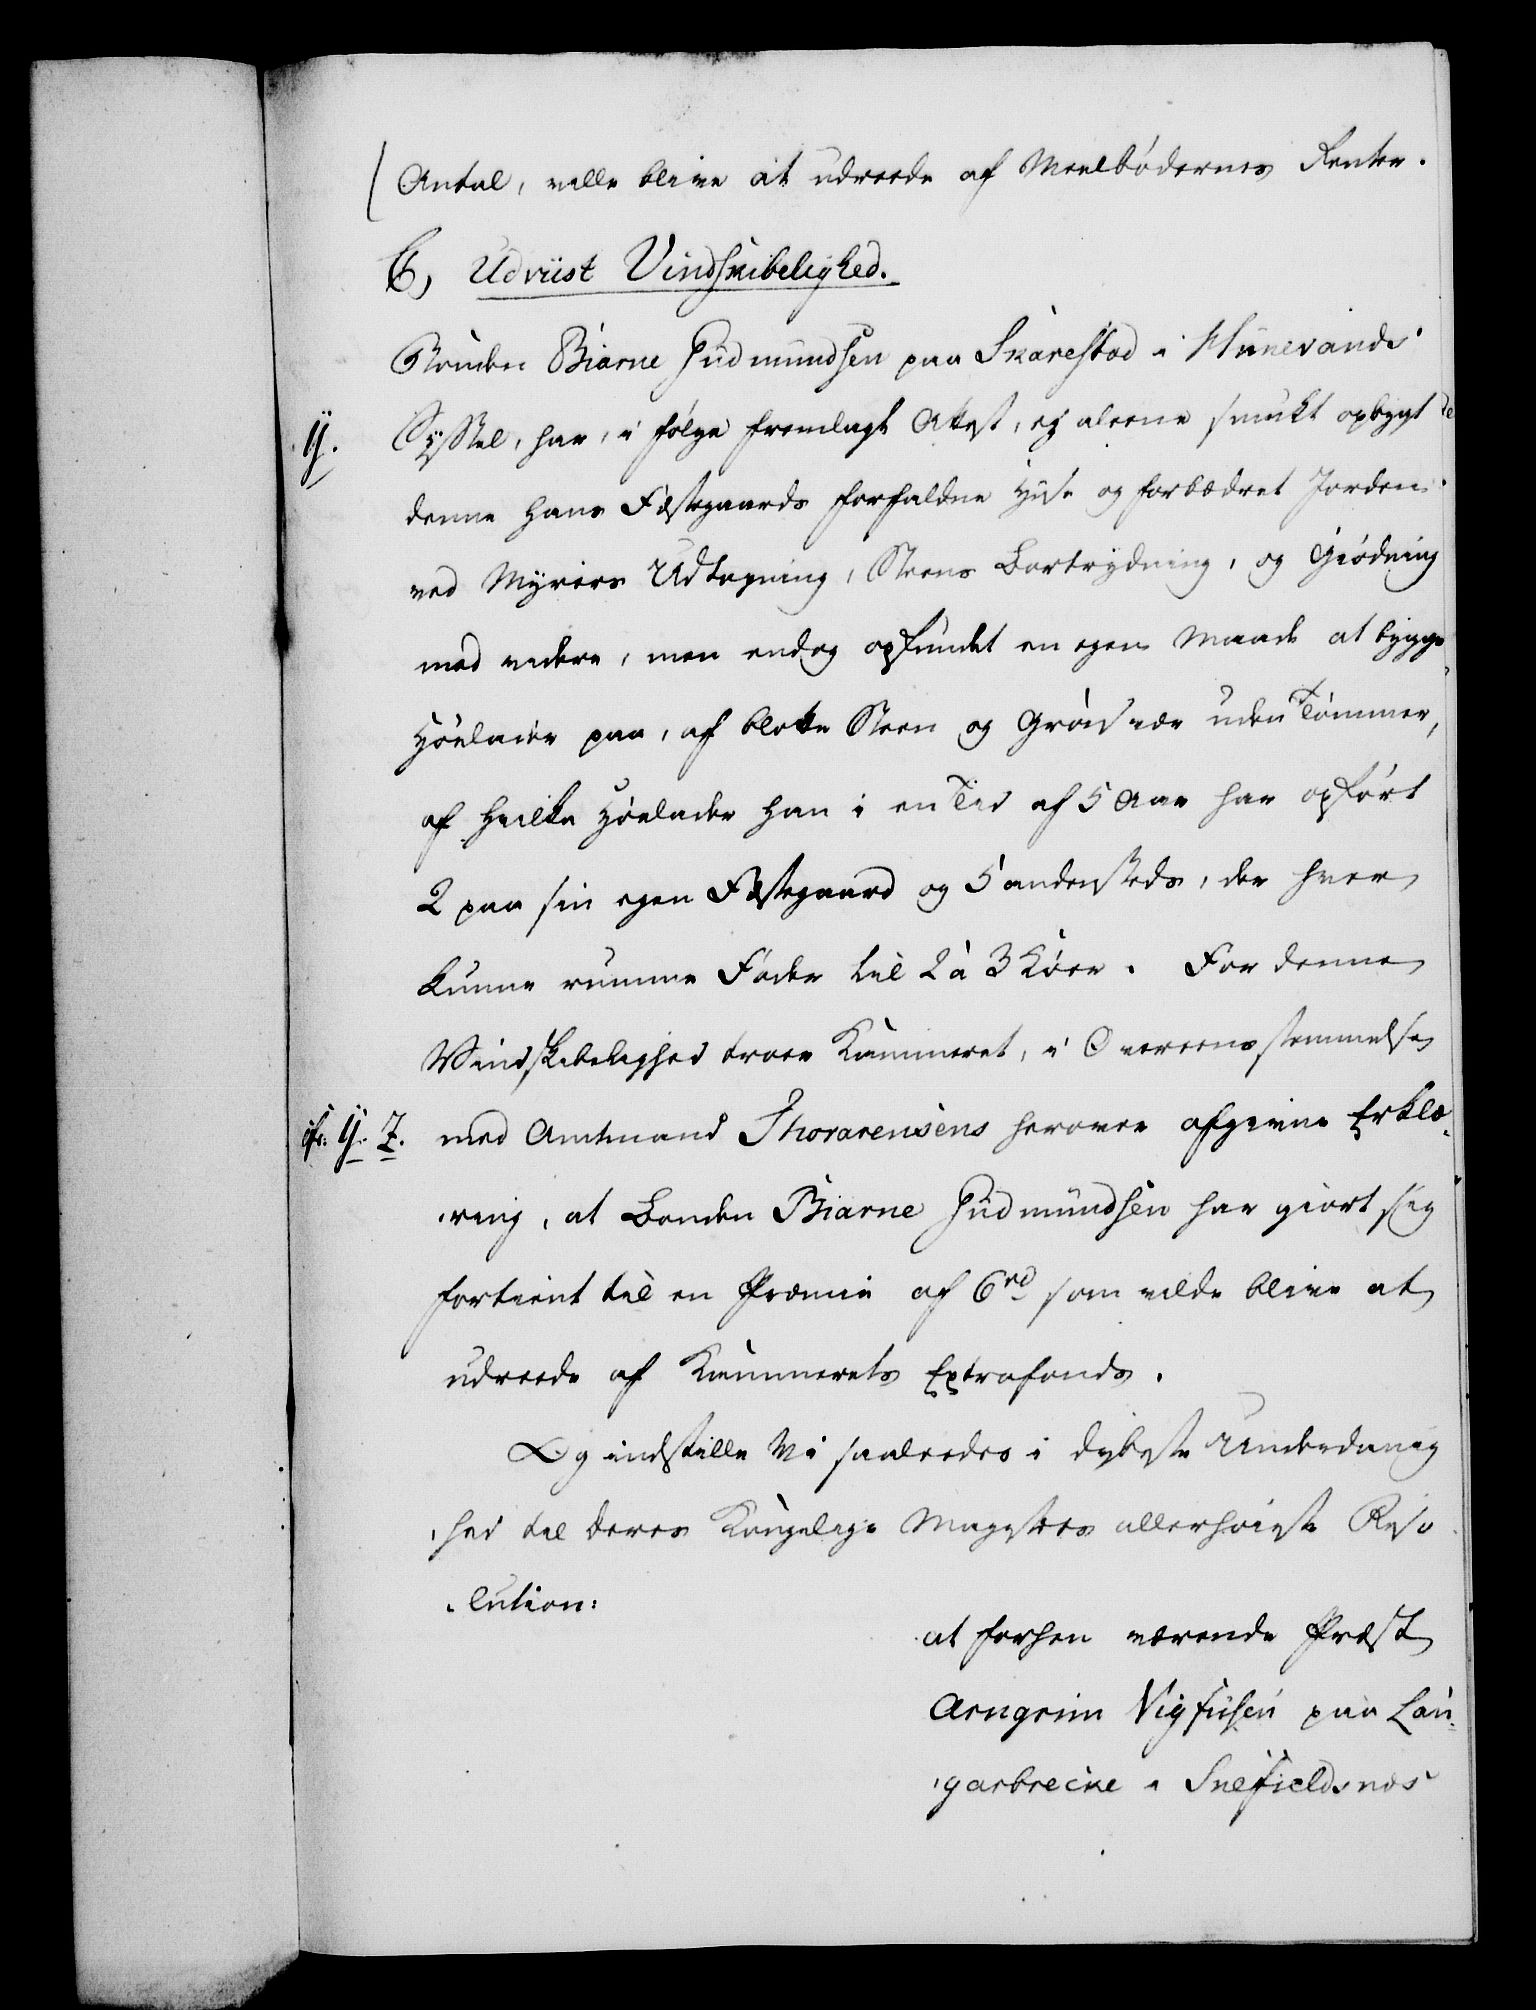 Antal, ville blive at udreede af Meelbødernes Renter.
C, Udviist Vindskibelighed.
Bonden Biarne Gudmundsen paa Skarestad i Hunevands
Y. Syssel, har, i følge fremlagt Attest, ej aleene smukt opbygt de
denne hans Fæstegaards forfaldne Huse og forbedret Jorden
ved Myrers Udtapning, Steens Bortrydning, og Giødning
med videre, men endog opfundet en egen Maade at bygge
Høelader paa, af blotte Steen og Grøn vær uden Tømmer,
af hvilke Høelader han i en Tid af 5 Aar har opført
2 paa sin egen Fæstegaard og 5 andenstæds, der hver
kunne rumme Foder til 2 à 3 Køer. For denne
Vindskibelighed troer Kammeret, i Overeensstemmelse
cfr. Y. Z. med Amtmand Thorarensens herover afgivne Erklæ-
-ring, at Bonden Biarne Gudmundsen har giort sig
fortient til en Præmie af 6 rd som vilde blive at
udreede af Kammerets Extrafonds.
Og indstille Vi saaledes i dybeste Underdanig
-hed til Deres Kongelige Majestæts allerhøieste Reso
-lution:
at forhen værende Præst
Arngrim Vigfusen paa Lau-
-garbrecke i Snefieldsnæs